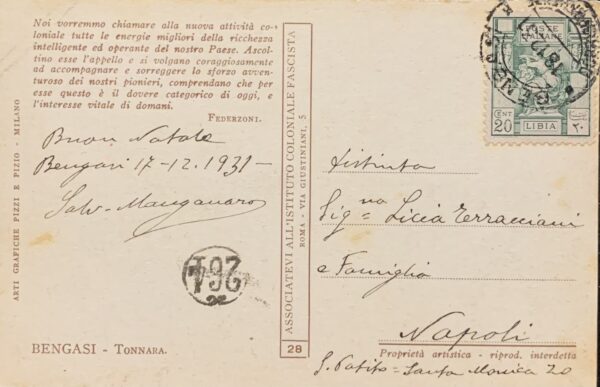 Noi vorremmo chiamare alla nuova attività co-
loniale tutte le energie migliori della ricchezza
intelligente ed operante del nostro Paese. Ascol-
tino esse l'appello e si volgano coraggiosamente
ad accompagnare e sorreggere lo sforzo avven-
turoso dei nostri pionieri, comprendano che per
esse questo è il dovere categorico di oggi, e
l'interesse vitale di domani.
FEDERZONI.
Buon Natale
Bengasi 17-12.1931-
Salv-Manganaro
261
BENGASI - TONNARA.
ARTI GRAFICHE PIZZI E PIZIO - MILANO
ASSOCIATEVI ALL'ISTITUTO COLONIALE FASCISTA
ROMA - VIA GIUSTINIANI, 5
28
POSTE
ITALIANE
CENT
20
LIBIA
٢٠
18 12
Distinta
Sig=na Licia Terracciani
e Famiglia
Napoli
Proprietà artistica - riprod. interdetta
S. Potito - Santa Monica 20